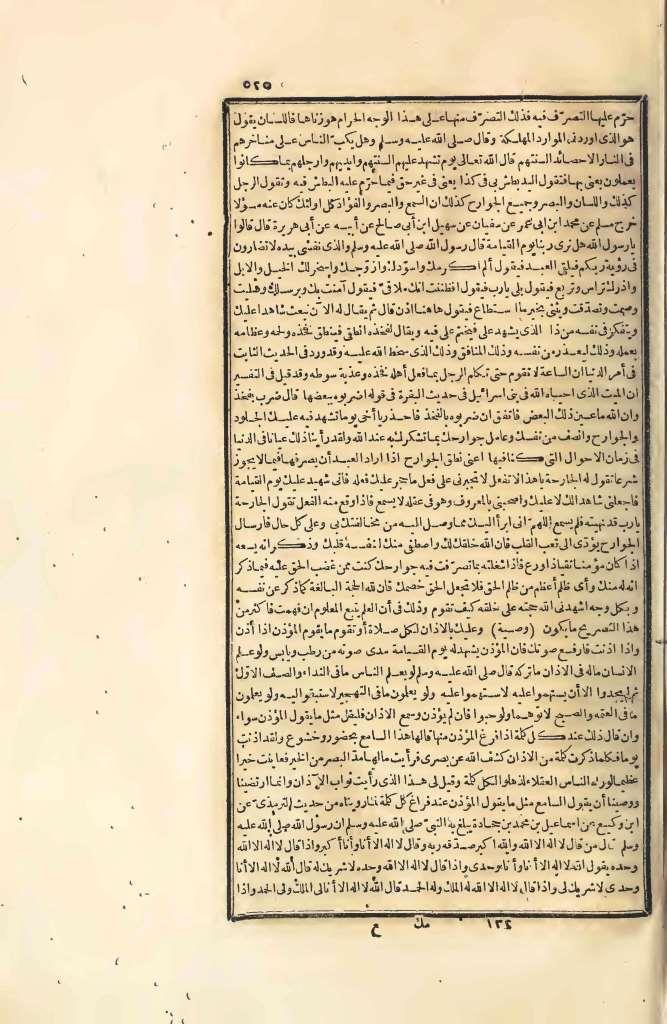 ٥٢٥
حرّم عليها التصرّف فيه فذلك التصرّف منها على هذا الوجه الحرام هو زناها فاللسان يقول
هو الذي أوردنه الموارد المهلكة وقال صلى الله عليه وسلم وهل يكبّ الناس على مناخرهم
في النار الا حصائد ألسنتهم قال الله تعالى يوم تشهد عليهم ألسنتهم وأيديهم وأرجلهم بما كانوا
يعملون يعني بها فتقول اليد بطش بي في كذا يعني في غير حق فيما حرّم عليه البطش فيه وتقول الرجل
كذلك واللسان والبصر وجميع الجوارح كذلك ان السمع والبصر والفؤاد كل أولئك كان عنه مسؤلا
خرج مسلم عن محمد ابن أبي عمر عن سفيان عن سهيل ابن أبي صالح عن أبيه عن أبي هريرة قال قالوا
يارسول الله هل نرى ربنا يوم القيامة قال رسول الله صلى الله عليه وسلم والذي نفسي بيده لا تضارون
في رؤية ربكم فيلقى العبد فيقول ألم أكرمك وأسوّدك وأزوّجك وأسخر لك الخيل والابل
وأذرك ترأس وتربع فيقول بلى يارب فيقول أفظننت انك ملاقيّ فيقول آمنت بك وبرسلك وصليت
وصمت وتصدّقت ويثني بخير ما استطاع فيقول هاهنا اذن قال ثم يقال له الآن نبعث شاهدا عليك
ويتفكر في نفسه من ذا الذي يشهد علي فيختم على فيه ويقال لفخذه انطقي فينطق فخذه ولحمه وعظامه
بعمله وذلك ليعذر من نفسه وذلك المنافق وذلك الذي سخط الله عليه وقد ورد في الحديث الثابت
في أمر الدنيا ان الساعة لا تقوم حتى تكلم الرجل بما فعل أهله فخذه وعذبة سوطه وقد قيل في التفسير
ان الميت الذي أحياه الله في بني اسرائيل في حديث البقرة في قوله اضربوه ببعضها قال ضرب بفخذ
وان الله ما عين ذلك البعض فاتفق ان ضربوه بالفخذ فاحذر يا أخي يوما تشهد فيه عليك الجلود
والجوارح وأنصف من نفسك وعامل جوارحك بما تشكرك به عند الله ولقد رأينا ذلك عيانا في الدنيا
في زمان الاحوال التي كنا فيها أعني نطق الجوارح اذا أراد العبد أن يصرفها فيما لا يجوز
شرعا تقول له الجارحة يا هذا لا تفعل لا تجبرني على فعل ما حجر عليك فعله فاني شهيد عليك يوم القيامة
فاجعلني شاهدا لك لا عليك واصحبني بالمعروف وهو في غفلة لا يسمع فاذا وقع منه الفعل تقول الجارحة
يارب قد نهيته فلم يسمع اللهمّ اني أبرأ اليك مما وصل اليه من مخالفتك بي وعلى كل حال فارسال
الجوارح يؤدّي الى تعب القلب فان الله خلقك لك واصطفى منك لنفسه قلبك وذكر انه يسعه
اذا كان مؤمنا تقيا ذا ورع فاذا شغلته بما تصرّفت فيه جوارحك كنت ممن غضب الحق عليه فيما ذكر
انه له منك وأي ظلم أعظم من ظلم الحق فلا تجعل الحق خصمك فان لله الحجة البالغة كما ذكر عن نفسه
وبكل وجه أشهدني الله حجته على خلقه كيف تقوم وذلك في أن العلم يتبع المعلوم ان فهمت فأكثر من
هذا التصريح ما يكون (وصية) وعليك بالاذان لكل صلاة أو تقوم ما يقوم المؤذن اذا أذن
واذا أذنت فارفع صوتك فان المؤذن يشهد له يوم القيامة مدى صوته من رطب ويابس ولو علم
الانسان ماله في الاذان ما تركه قال صلى الله عليه وسلم لو يعلم الناس ما في النداء والصف الاوّل
ثم لم يجدوا الا أن يستهموا عليه لاستهموا عليه ولو يعلمون ما في التهجير لاستبقوا اليه ولو يعلمون
ما في العتمة والصبح لأتوهما ولو حبوا فان لم يؤذن وسمع الاذان فليقل مثل ما يقول المؤذن سواء
وان قال ذلك عند كل كلمة اذا فرغ المؤذن منها قالها هذا السامع بحضور وخشوع ولقد أذنت
يوما فكلما ذكرت كلمة من الاذان كشف الله عن بصري فرأيت ما لها مدّ البصر من الخير فعاينت خيرا
عظيما لو رآه الناس العقلاء لذهلوا لكل كلمة وقيل لي هذا الذي رأيت ثواب الاذان وانما ارتضينا
ووصينا أن يقول السامع مثل ما يقول المؤذن عند فراغ كل كلمة لما رويناه من حديث الترمذي عن
ابن وكيع عن اسماعيل بن محمد بن جحادة يبلغ به النبيّ صلى الله عليه وسلم ان رسول الله صلى الله عليه
وسلم قال من قال لا اله الا الله والله أكبر صدّقه ربه وقال لا اله الا أنا وأنا أكبر واذا قال لا اله الا الله
وحده يقول الله لا اله الا أنا وأنا وحدي واذا قال لا اله الا الله وحده لا شريك له قال الله لا اله الا أنا
وحدي لا شريك لي واذا قال لا اله الا الله له الملك وله الحمد قال الله لا اله الا أنا لي الملك ولي الحمد واذا
١٣٤ مك ع